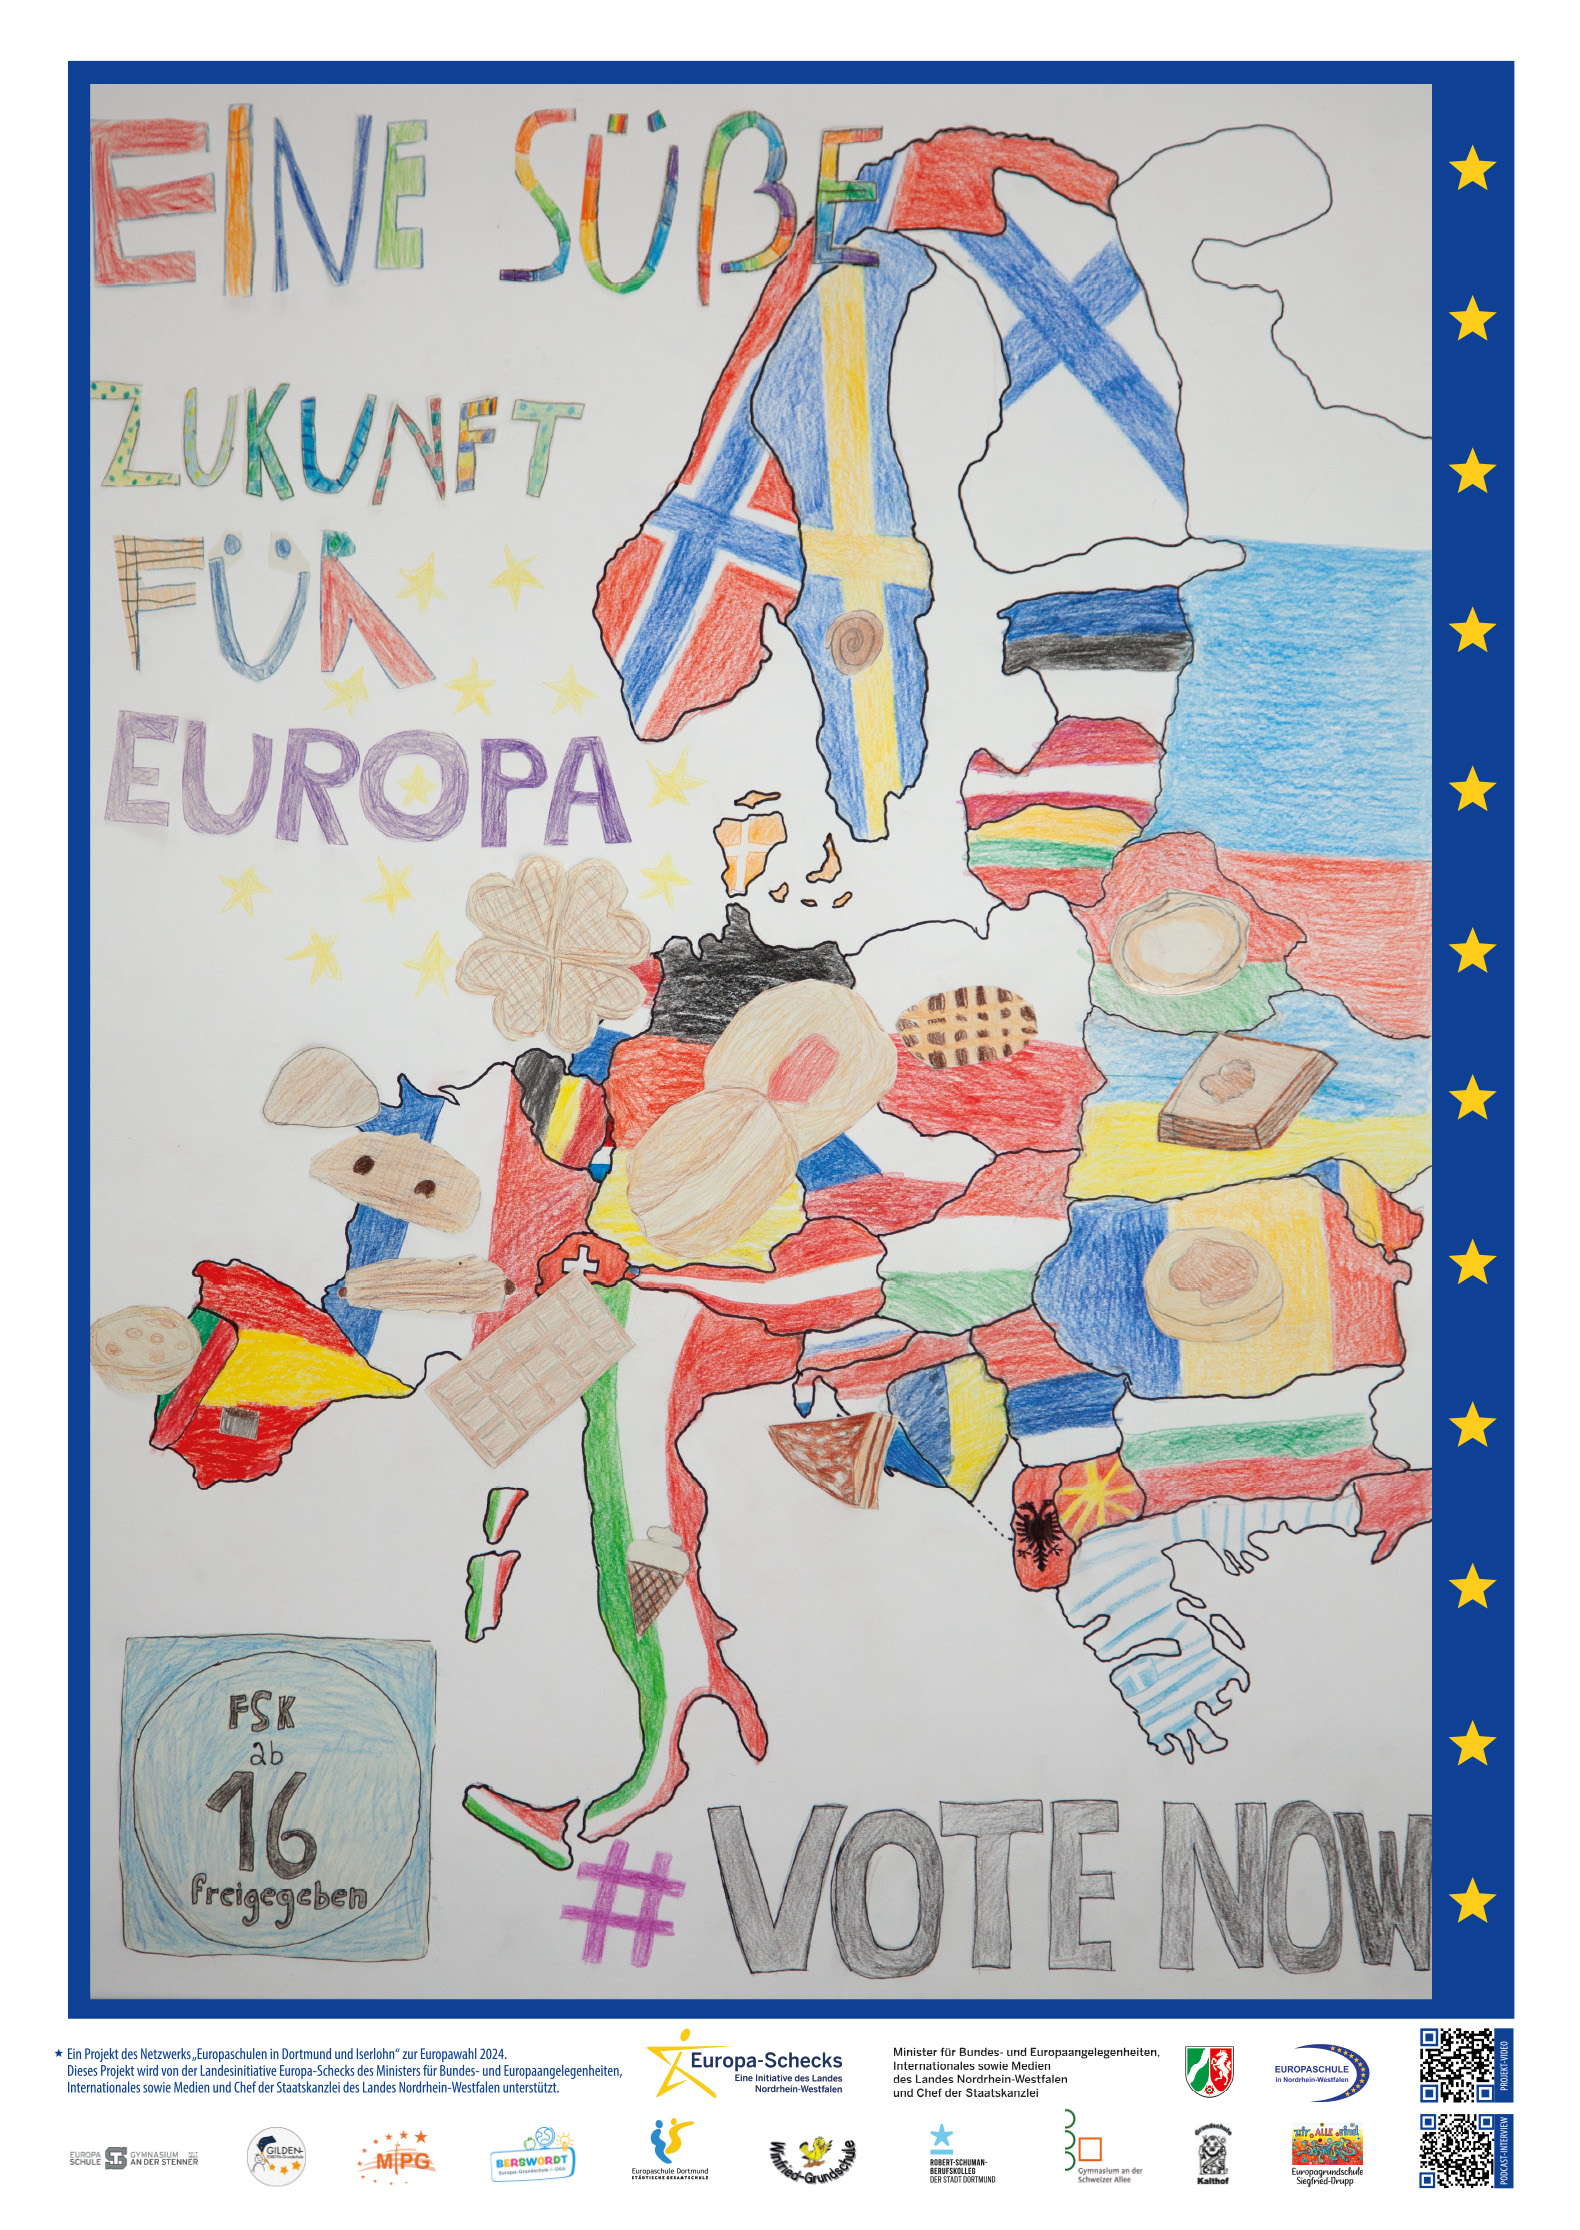 EINE SÜßE
ZUKUNFT
FÜR
EUROPA
FSK
ab
16
freigegeben
# VOTE NOW
★ Ein Projekt des Netzwerks „Europaschulen in Dortmund und Iserlohn“ zur Europawahl 2024.
Dieses Projekt wird von der Landesinitiative Europa-Schecks des Ministers für Bundes- und Europaangelegenheiten,
Internationales sowie Medien und Chef der Staatskanzlei des Landes Nordrhein-Westfalen unterstützt.
Europa-Schecks
Eine Initiative des Landes
Nordrhein-Westfalen
Minister für Bundes- und Europaangelegenheiten,
Internationales sowie Medien
des Landes Nordrhein-Westfalen
und Chef der Staatskanzlei
EUROPASCHULE
in Nordrhein-Westfalen
PROJEKT-VIDEO
EUROPA
SCHULE
GYMNASIUM
AN DER STENNER
GILDEN-
MPG
BERSWORDT
Europa-Grundschule
Europaschule Dortmund
STÄDTISCHE GESAMTSCHULE
Winfried-Grundschule
ROBERT-SCHUMAN-
BERUFSKOLLEG
DER STADT DORTMUND
Gymnasium an der
Schweizer Allee
Grundschule
Kalthof
WIR ALLE sind
Europagrundschule
Siegfried-Drupp
PODCAST-INTERVIEW